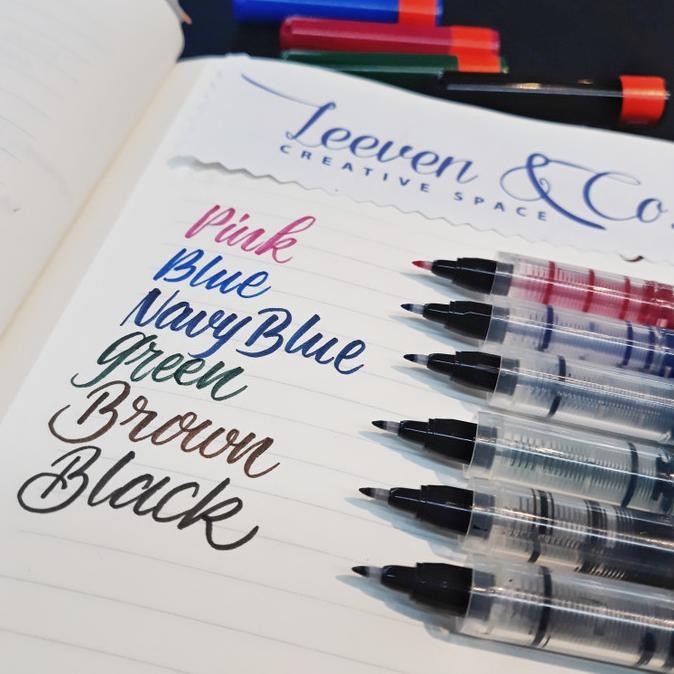 Leeven & Co.
CREATIVE SPACE
Pink
Blue
Navy Blue
green
Brown
Black